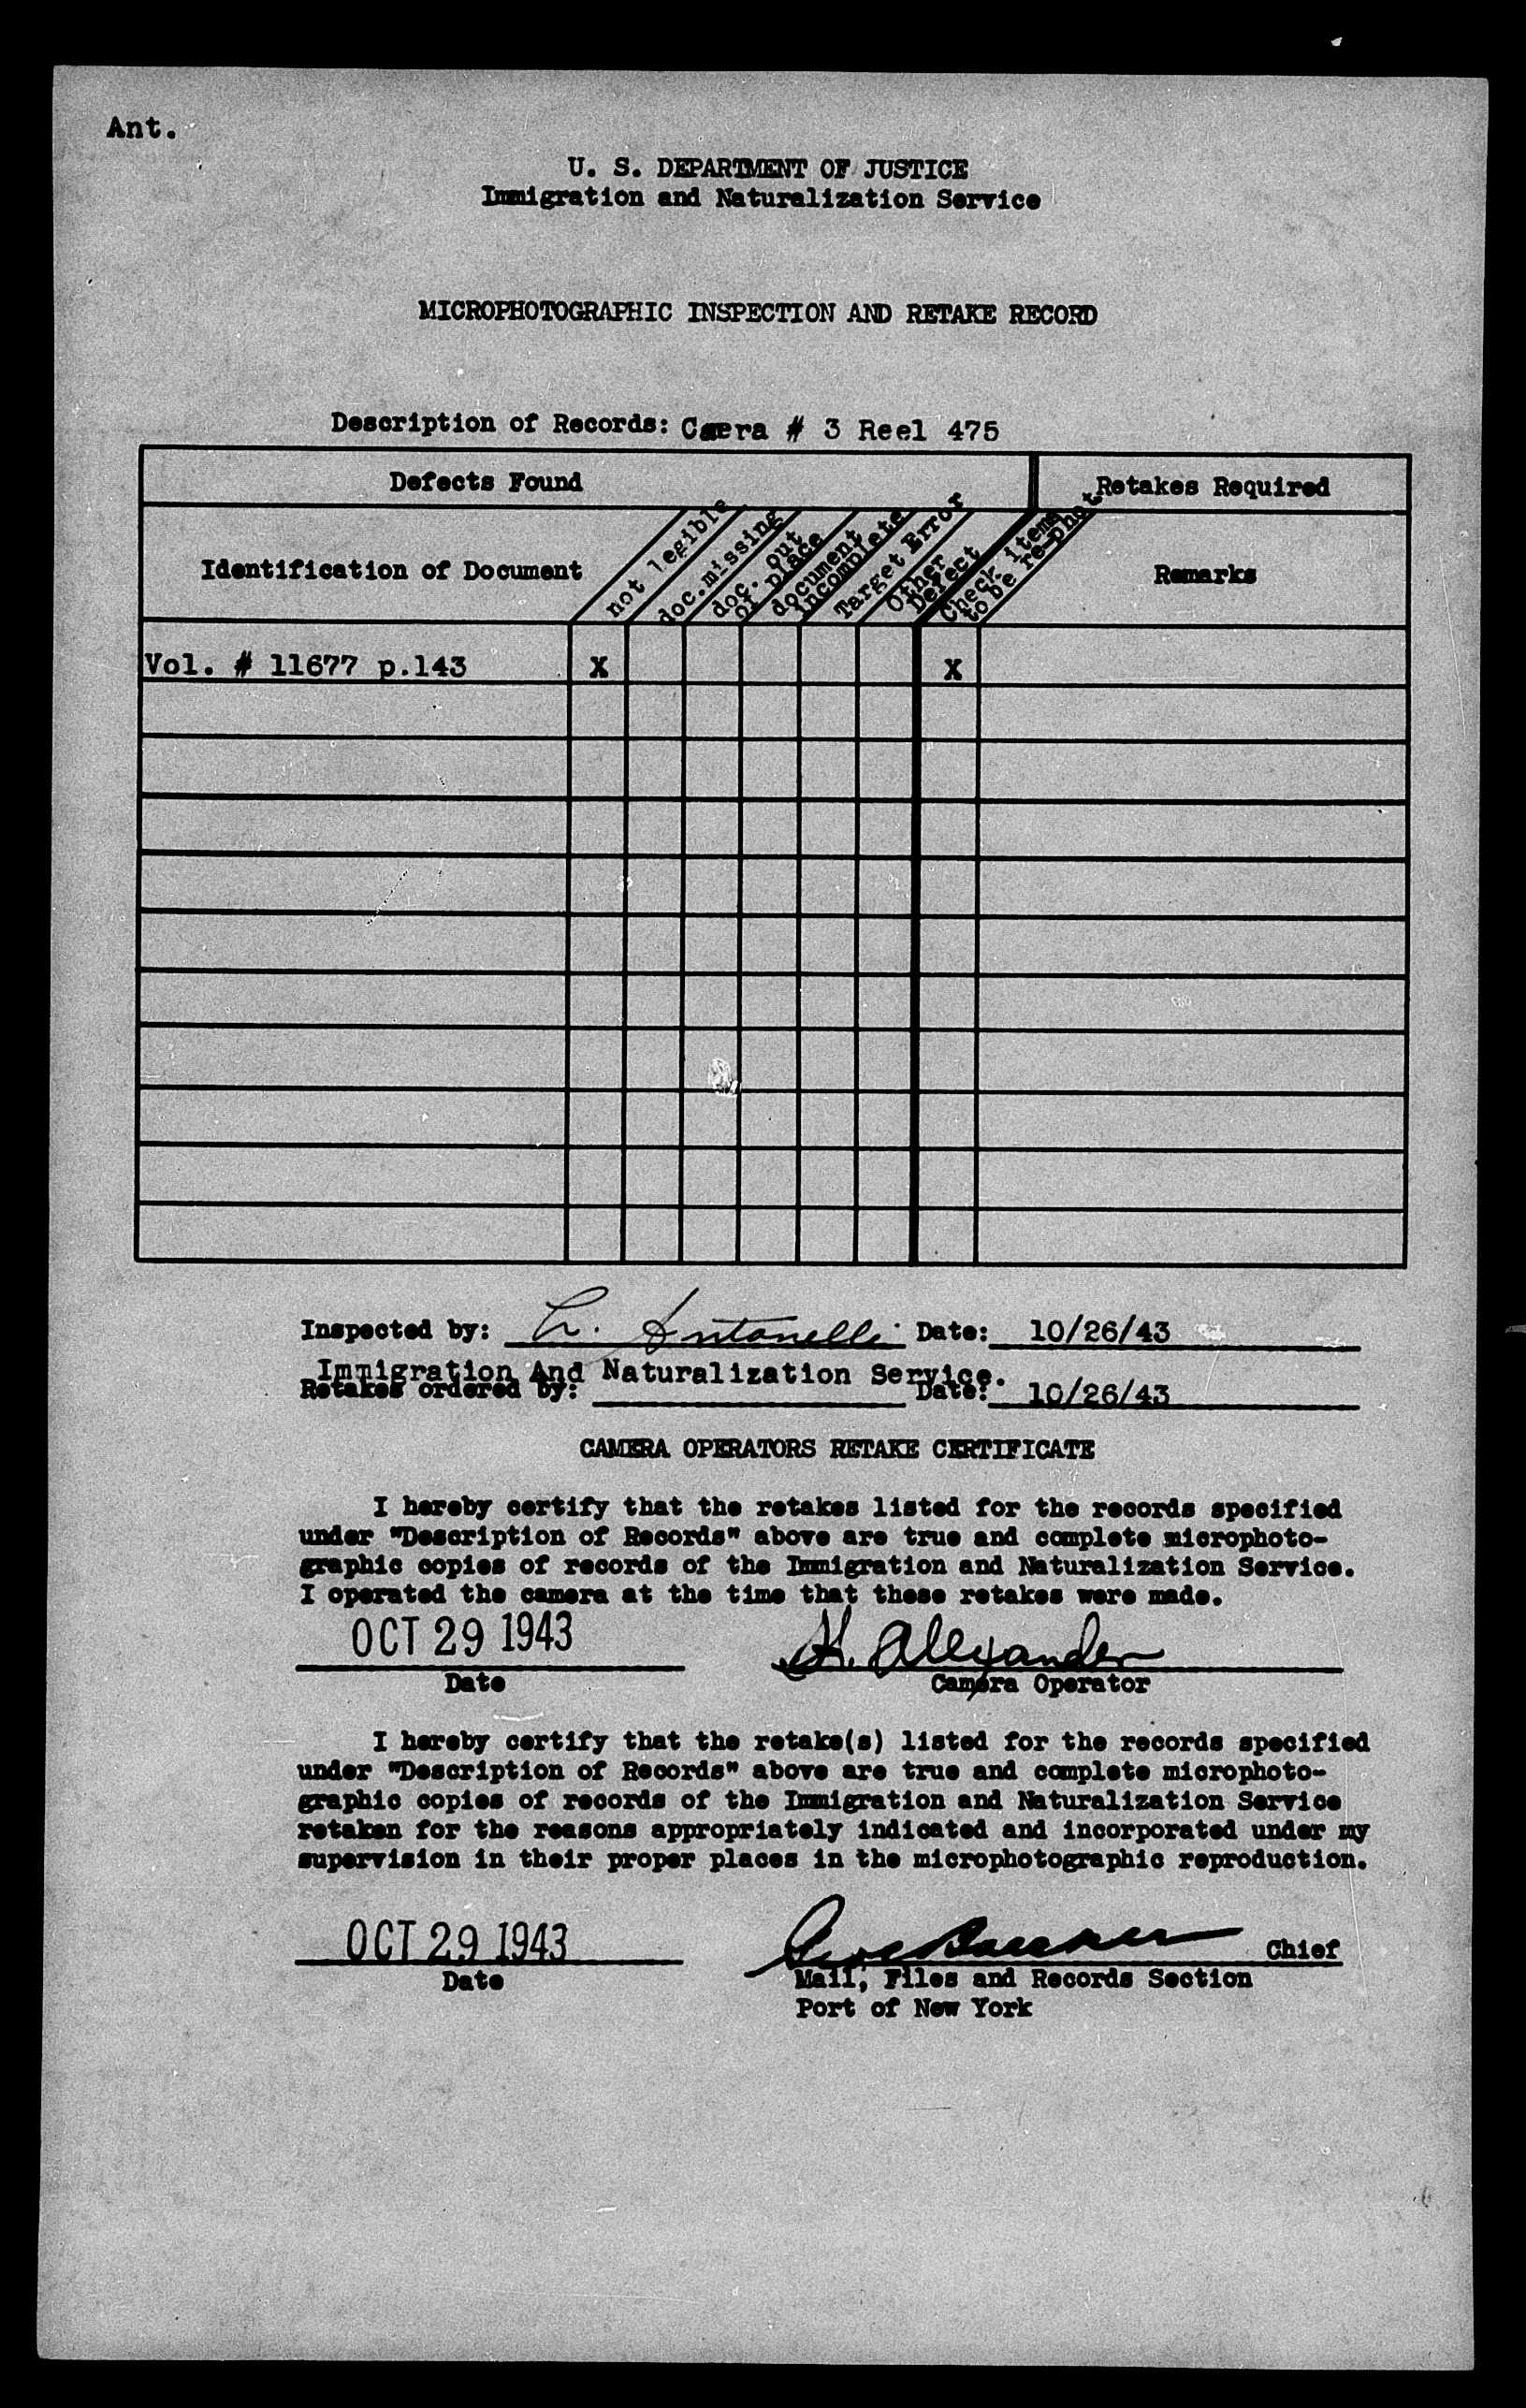 Ant.
U. S. DEPARTMENT OF JUSTICE
Immigration and Naturalization Service
MICROPHOTOGRAPHIC INSPECTION AND RETAKE RECORD
Description of Records: Caera # 3 Reel 475
Defects Found
Retakes Required
Identification of Document
not legible
doc.missing
doc. out
of place
document
incomplete
Target Error
Other
Defect
Check items
to be re-phot.
Remarks
Vol. # 11677 p.143 X X
Inspected by: L. Antonelli Date: 10/26/43
Immigration And Naturalization Service.
Retakes ordered by: Date: 10/26/43
CAMERA OPERATORS RETAKE CERTIFICATE
I hereby certify that the retakes listed for the records specified
under "Description of Records" above are true and complete microphoto-
graphic copies of records of the Immigration and Naturalization Service.
I operated the camera at the time that these retakes were made.
OCT 29 1943 H. Alexander
Date Camera Operator
I hereby certify that the retake(s) listed for the records specified
under "Description of Records" above are true and complete microphoto-
graphic copies of records of the Immigration and Naturalization Service
retaken for the reasons appropriately indicated and incorporated under my
supervision in their proper places in the microphotographic reproduction.
OCT 29 1943 Chief
Date Mail, Files and Records Section
Port of New York